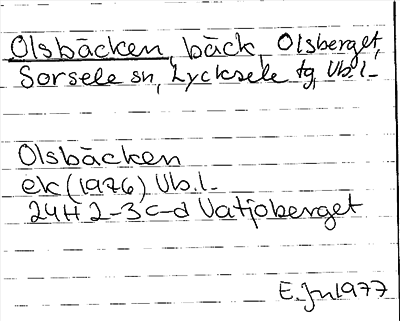 Olsbäcken, bäck, Olsberget,
Sorsele sn, Lycksele tg, Vb.l.
Olsbäcken
ek (1976) Vb.l.
24H 2-3 c-d Vatjoberget
E. Jn 1977